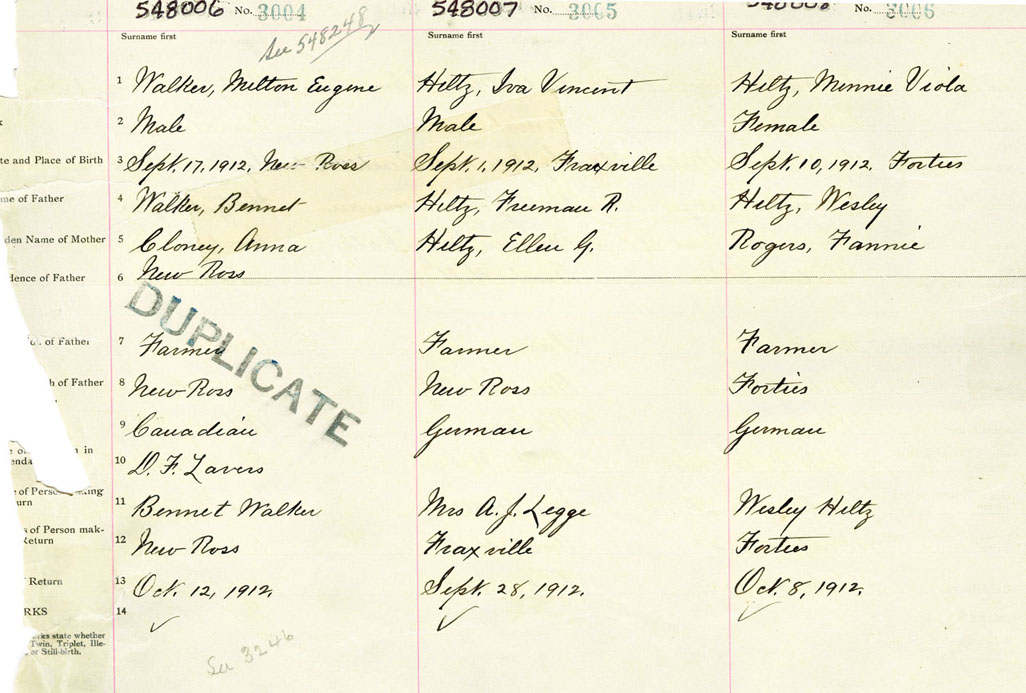 548006 No. 3004 548007 No. 3005 548008 No. 3006
See 548248
Surname first Surname first Surname first
1 Walker, Milton Eugene Hiltz, Iva Vincent Hiltz, Minnie Viola
2 Male Male Female
te and Place of Birth 3 Sept. 17, 1912, New Ross Sept. 1, 1912, Fraxville Sept. 10, 1912, Forties
me of Father 4 Walker, Bennet Hiltz, Freeman R. Hiltz, Wesley
den Name of Mother 5 Cloney, Anna Hiltz, Ellen G. Rogers, Fannie
dence of Father 6 New Ross
DUPLICATE
of Father 7 Farmer Farmer Farmer
h of Father 8 New Ross New Ross Forties
9 Canadian German German
in
enda 10 D. F. Lavers
e of Person making
urn 11 Bennet Walker Mrs A. J. Legge Wesley Hiltz
s of Person mak-
Return 12 New Ross Fraxville Forties
Return 13 Oct. 12, 1912. Sept. 28, 1912. Oct. 8, 1912.
RKS 14 ✓ ✓ ✓
rks state whether
Twin, Triplet, Ille-
or Still-birth.
See 3246